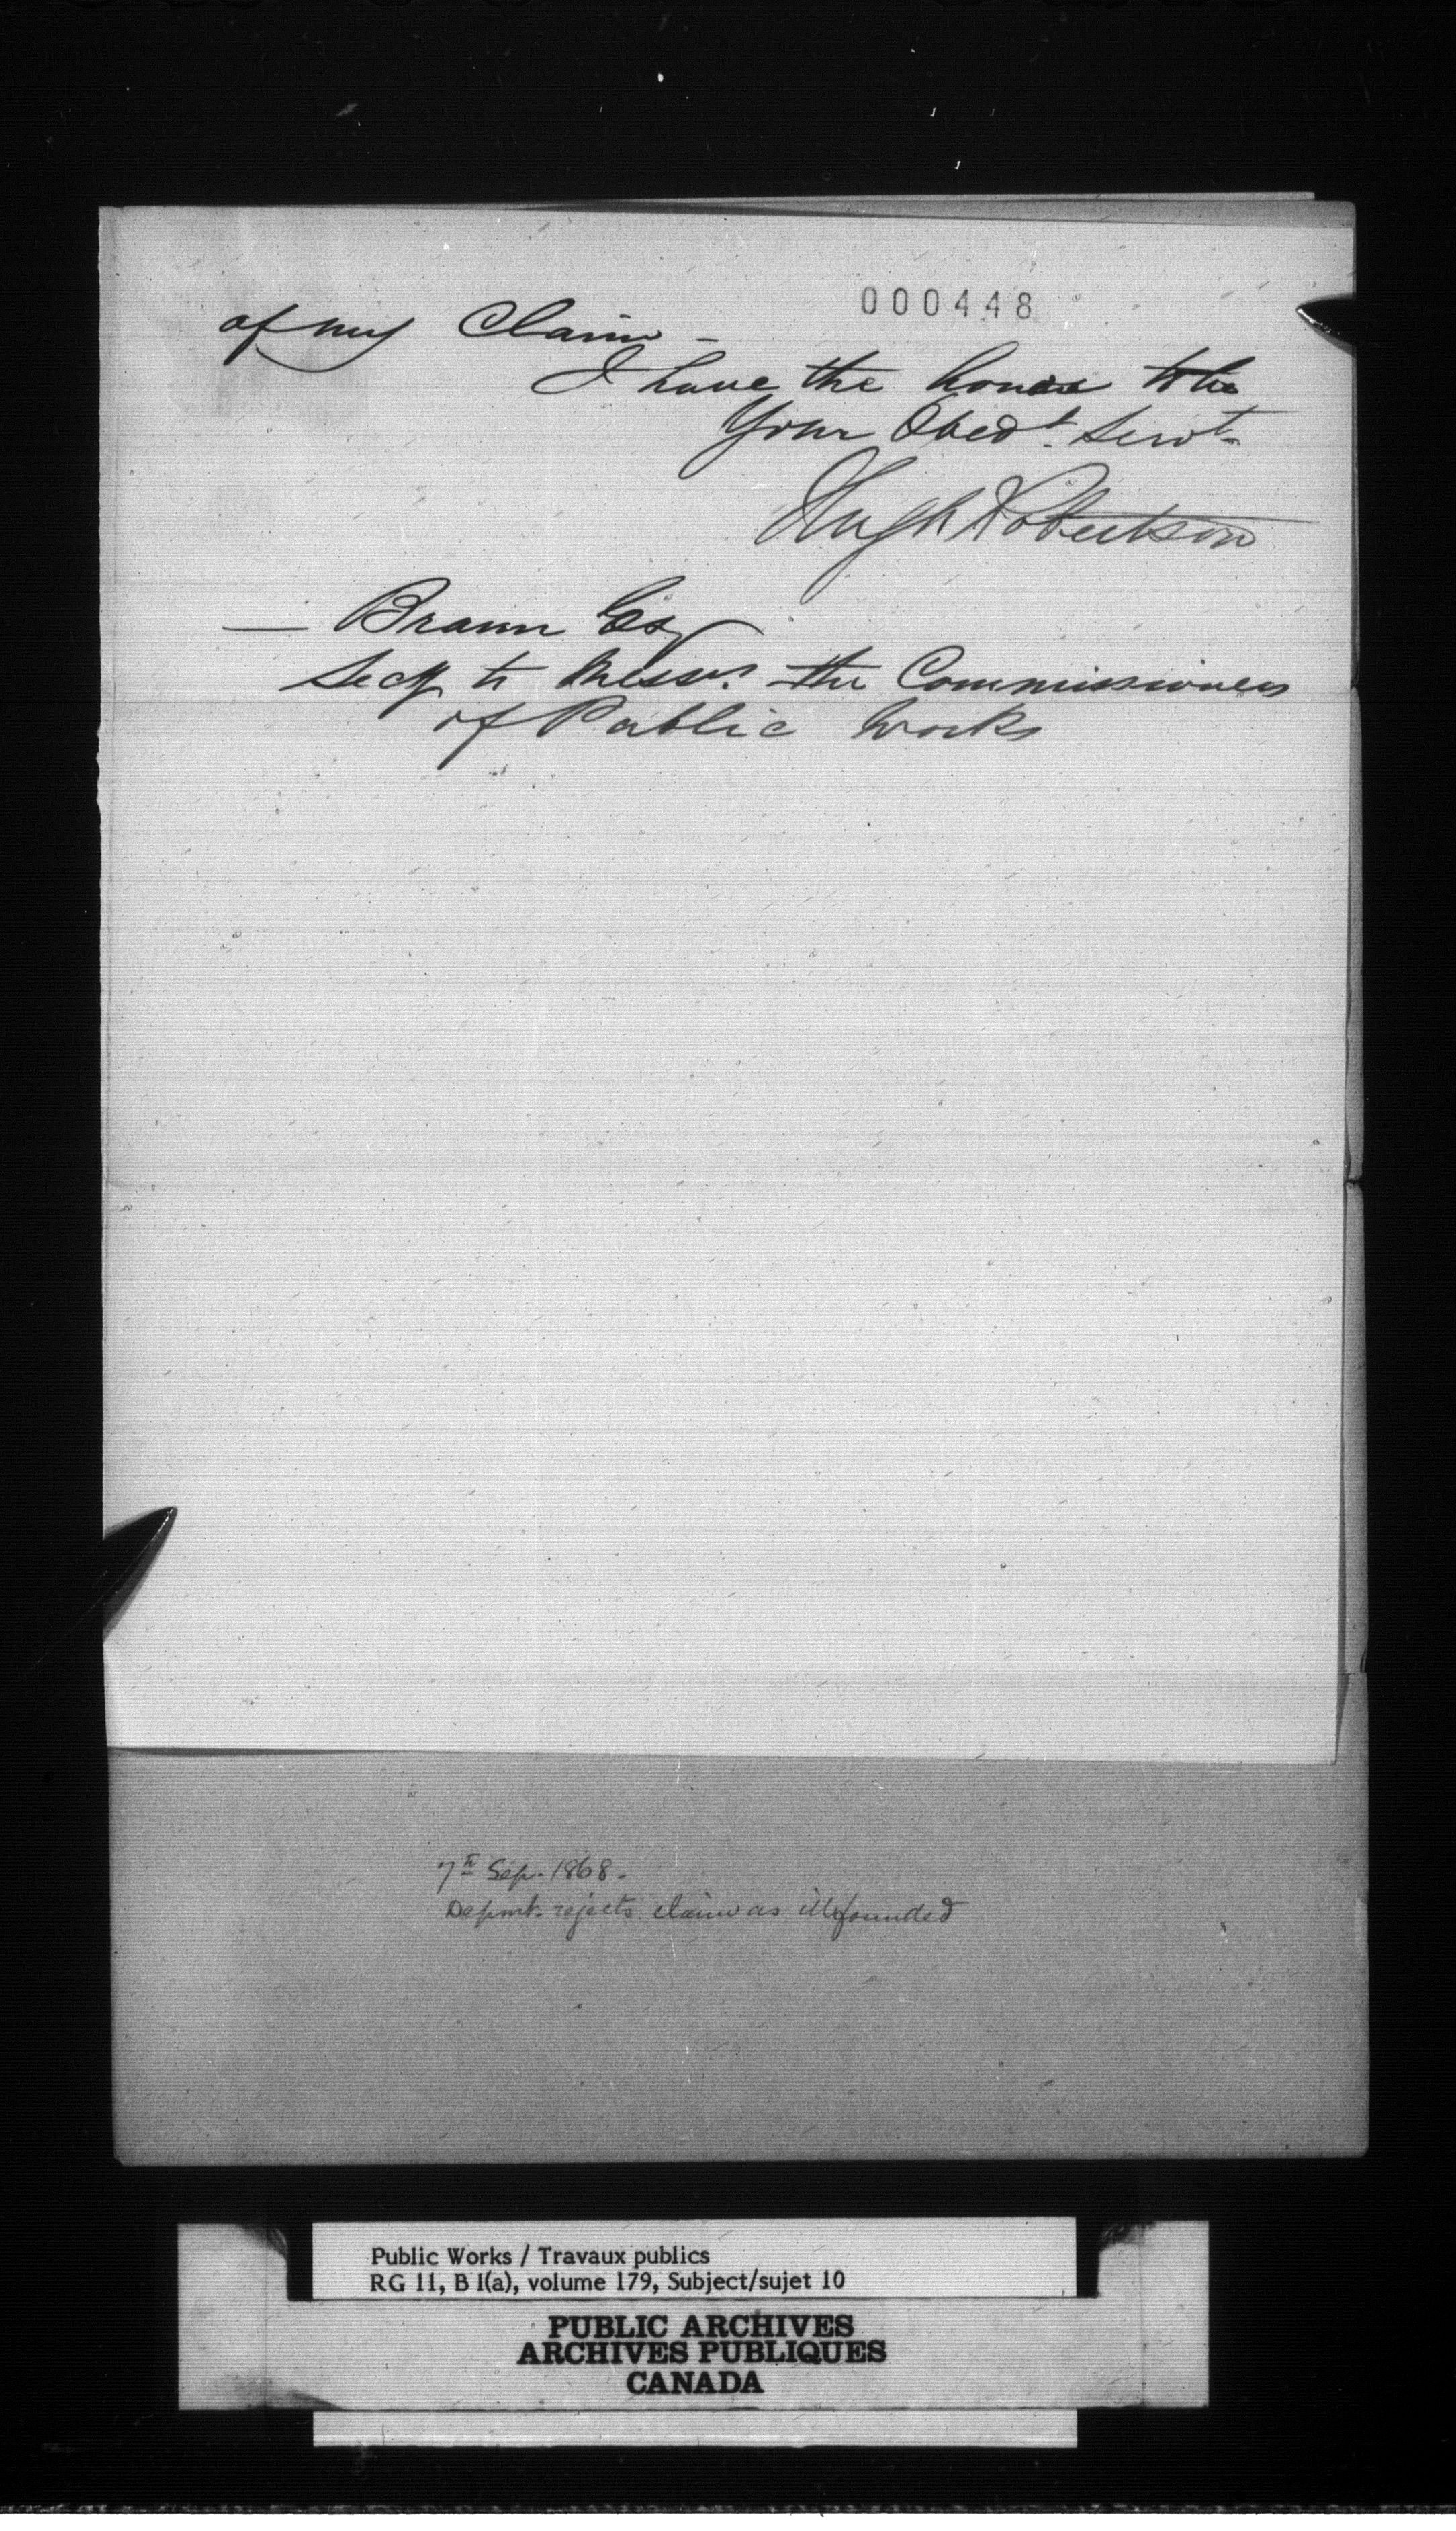 000448
of my Claim -
I have the honor to be
Your Obedt. Servt-
Hugh Robertson
— Braun Esq
Secy to Messrs. the Commissioners
of Public Works
7th Sep. 1868.
Depmt. rejects claim as illfounded
Public Works / Travaux publics
RG 11, B 1(a), volume 179, Subject/sujet 10
PUBLIC ARCHIVES
ARCHIVES PUBLIQUES
CANADA